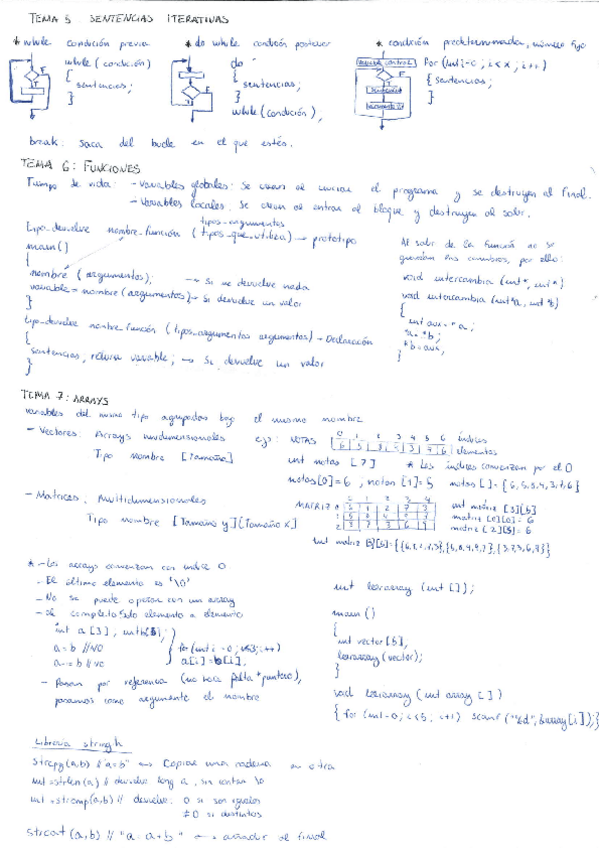 TEMA 5 SENTENCIAS ITERATIVAS
* while condición previa
while (condición)
{
sentencias;
}
* do while condición posterior
do
{
sentencias;
}
while (condición);
* condición predeterminada, número fijo
variable control
for (int i=0; i<x; i++)
{ sentencias;
}
break: saca del bucle en el que estés.
TEMA 6: FUNCIONES
Tiempo de vida: - Variables globales: se crean al iniciar el programa y se destruyen al final.
- Variables locales: se crean al entrar al bloque y destruyen al salir.
tipos-argumentos
tipo-devuelve nombre-función (tipos-que-utiliza) → prototipo
main()
{
nombre (argumentos); → Si no devuelve nada
variable = nombre (argumentos) → Si devuelve un valor
}
tipo-devuelve nombre-función (tipos-argumentos argumentos) → Declaración
{
sentencias, return variable; → Si devuelve un valor
}
Al salir de la función no se
guardan los cambios, por ello:
void intercambia (int*, int*)
void intercambia (int*a, int*b)
{
int aux = *a;
*a = *b;
*b = aux;
}
TEMA 7: ARRAYS
Variables del mismo tipo agrupadas bajo el mismo nombre
- Vectores: Arrays unidimensionales
Tipo nombre [Tamaño]
ej: NOTAS
0 1 2 3 4 5 6 índices
elementos
int notas [7] * Los índices comienzan por el 0
notas[0]=6; notas[1]=5
- Matrices: Multidimensionales
Tipo nombre [Tamaño y][Tamaño x]
MATRIZ
0 1 2 3 4
matriz [0][0] = 6
* - Los arrays comienzan con índice 0
- El último elemento es '\0'
- No se puede operar con un array
- Se completa todo elemento a elemento
a = b //NO
for (int i = 0; i<3; i++)
a[i] = b[i];
- Pasan por referencia (no hace falta *puntero),
pasamos como argumento el nombre
int leerarray (int []);
main ()
{
leerarray (vector);
}
void leerarray (int array [])
Librería string.h
strcpy(a,b) // "a=b" Copiar una cadena en otra
int = strlen(a) // devuelve long a, sin contar \0
int = strcmp(a,b) // devuelve: 0 si son iguales
≠0 si distintos
strcat (a,b) // "a = a+b" añadir al final